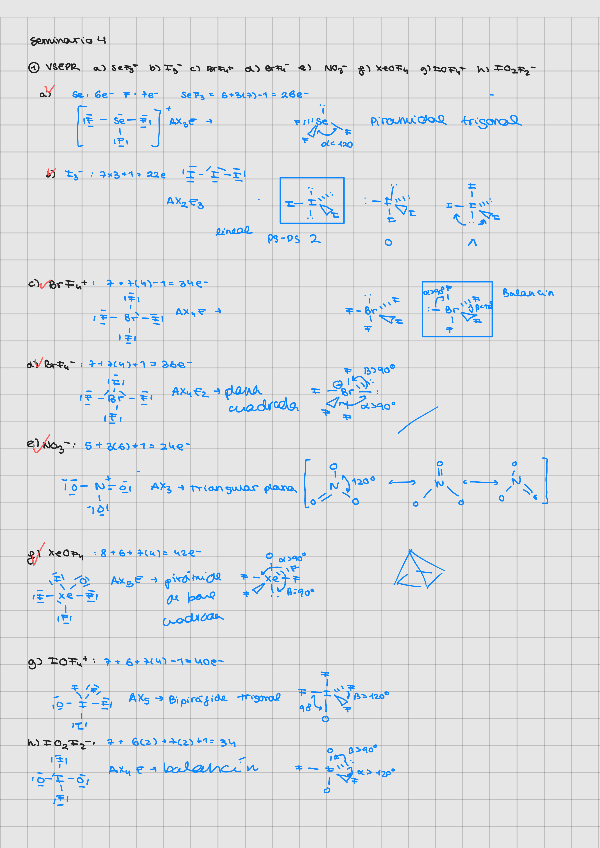 Seminario 4
① VSEPR a) SeF₃⁺ b) I₃⁻ c) BrF₄⁺ d) BrF₄⁻ e) NO₃⁻ f) XeOF₄ g) IOF₄⁺ h) IO₂F₂⁻
a) Se: 6e⁻ F: 7e⁻ SeF₃ = 6+3(7)-1 = 26e⁻
AX₃E → Piramidal trigonal
α<120
b) I₃⁻ : 7x3+1 = 22e
AX₂E₃
lineal PS-PS 2 0 1
c) BrF₄⁺ : 7+7(4)-1 = 34e⁻
AX₄E → Balancin
d) BrF₄⁻ : 7+7(4)+1 = 36e⁻
AX₄E₂ → plana β>90°
cuadrada α>90°
e) NO₃⁻ : 5+3(6)+1 = 24e⁻
AX₃ → triangular plana 120°
f) XeOF₄ : 8+6+7(4) = 42e⁻
AX₅E → pirámide α>90°
de base β=90°
cuadrada
g) IOF₄⁺ : 7+6+7(4)-1 = 40e⁻
AX₅ → Bipirámide trigonal β>120°
h) IO₂F₂⁻ : 7+6(2)+7(2)+1 = 34
AX₄E → balancín β>90°
α>120°